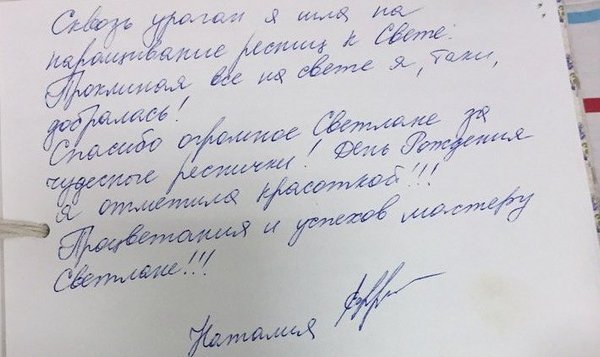 Сквозь ураган я шла на
наращивание ресниц к Свете.
Проклиная все на свете я, таки,
добралась!
Спасибо огромное Светлане за
чудесные реснички! День Рождения
я отметила красоткой!!!
Процветания и успехов мастеру
Светлане!!!
Наталия